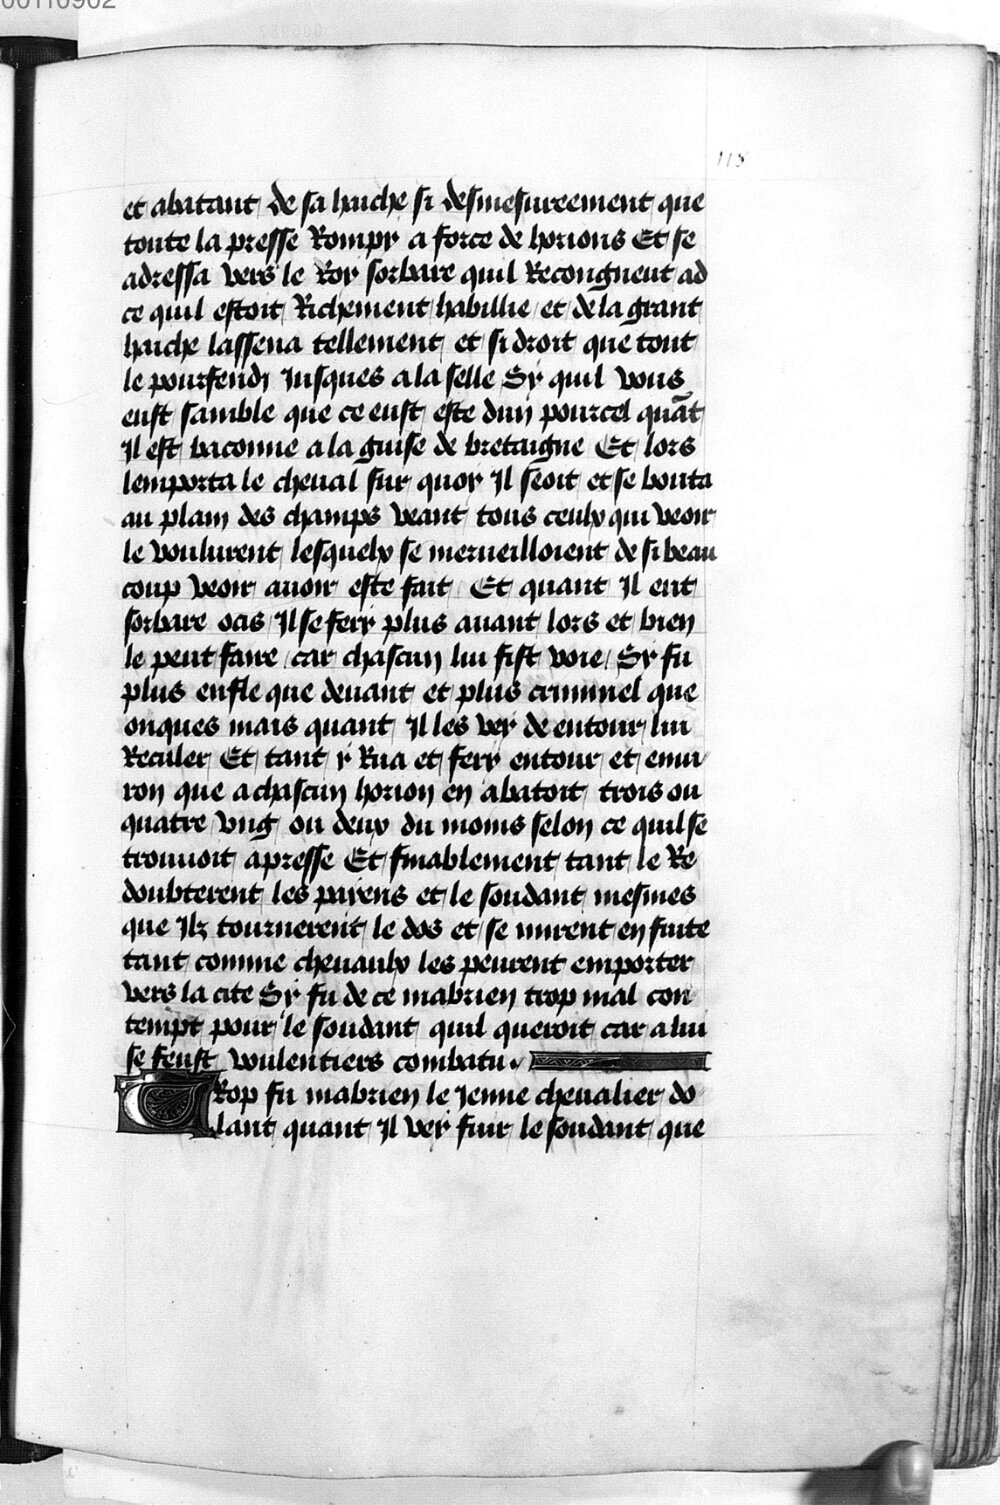 00110902
118
et abatant de sa haiche si desmesureement que
toute la presse Rompy a force de horions Et se
adressa vers le Roy sorbare quil Recongneut ad
ce quil estoit Richement habillie et de la grant
haiche lassena tellement et si droit que tout
le pourfendi Jusques a la selle Sy quil vous
eust samble que ce eust este dun pourcel quāt
Il est baconne a la guise de bretaigne Et lors
lemporta le cheual sur quoy Il seoit et se bouta
au plain des champs veant tous ceulx qui veoir
le voulurent lesquelx se merueilloient de si beau
coup veoir auoir este fait Et quant Il eut
sorbare ocis Il se fery plus auant lors et bien
le peut faire car chascun lui fist voie Sy fu
plus enfle que deuant et plus criminel que
onques mais quant Il les vey de entour lui
Reculer Et tant y Rua et fery entour et enui
ron que a chascun horion en abatoit trois ou
quatre vng ou deux du moins selon ce quil se
trouuoit apresse Et finablement tant le Re
doubterent les payens et le soudant mesmes
que Ilz tournerent le dos et se mirent en fuite
tant comme cheuaulx les peurent emporter
vers la cite Sy fu de ce mabrien trop mal con
tempt pour le soudant quil queroit car a lui
se feust voulentiers combatu
Trop fu mabrien le Jenne cheualier do
lant quant Il vey fuir le soudant que